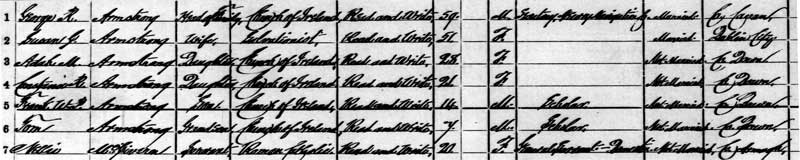 1 George R. Armstrong Head of Family Church of Ireland Read and Write 59 M. Married Co. Cavan
2 Susan G. Armstrong Wife Read and Write 51 F Married Dublin City
3 Armstrong Daughter Church of Ireland Read and Write 23 F Not Married Co. Down
4 Armstrong Daughter Church of Ireland Read and Write 21 F Not Married Co. Down
5 Armstrong Son Church of Ireland Read and Write 14 M. Scholar Not Married Co. Down
6 Tom Armstrong Grandson Church of Ireland Read and Write 7 M. Scholar Not Married Co. Down
7 Servant Roman Catholic Read and Write 20 F General Servant - Domestic Not Married Co. Armagh